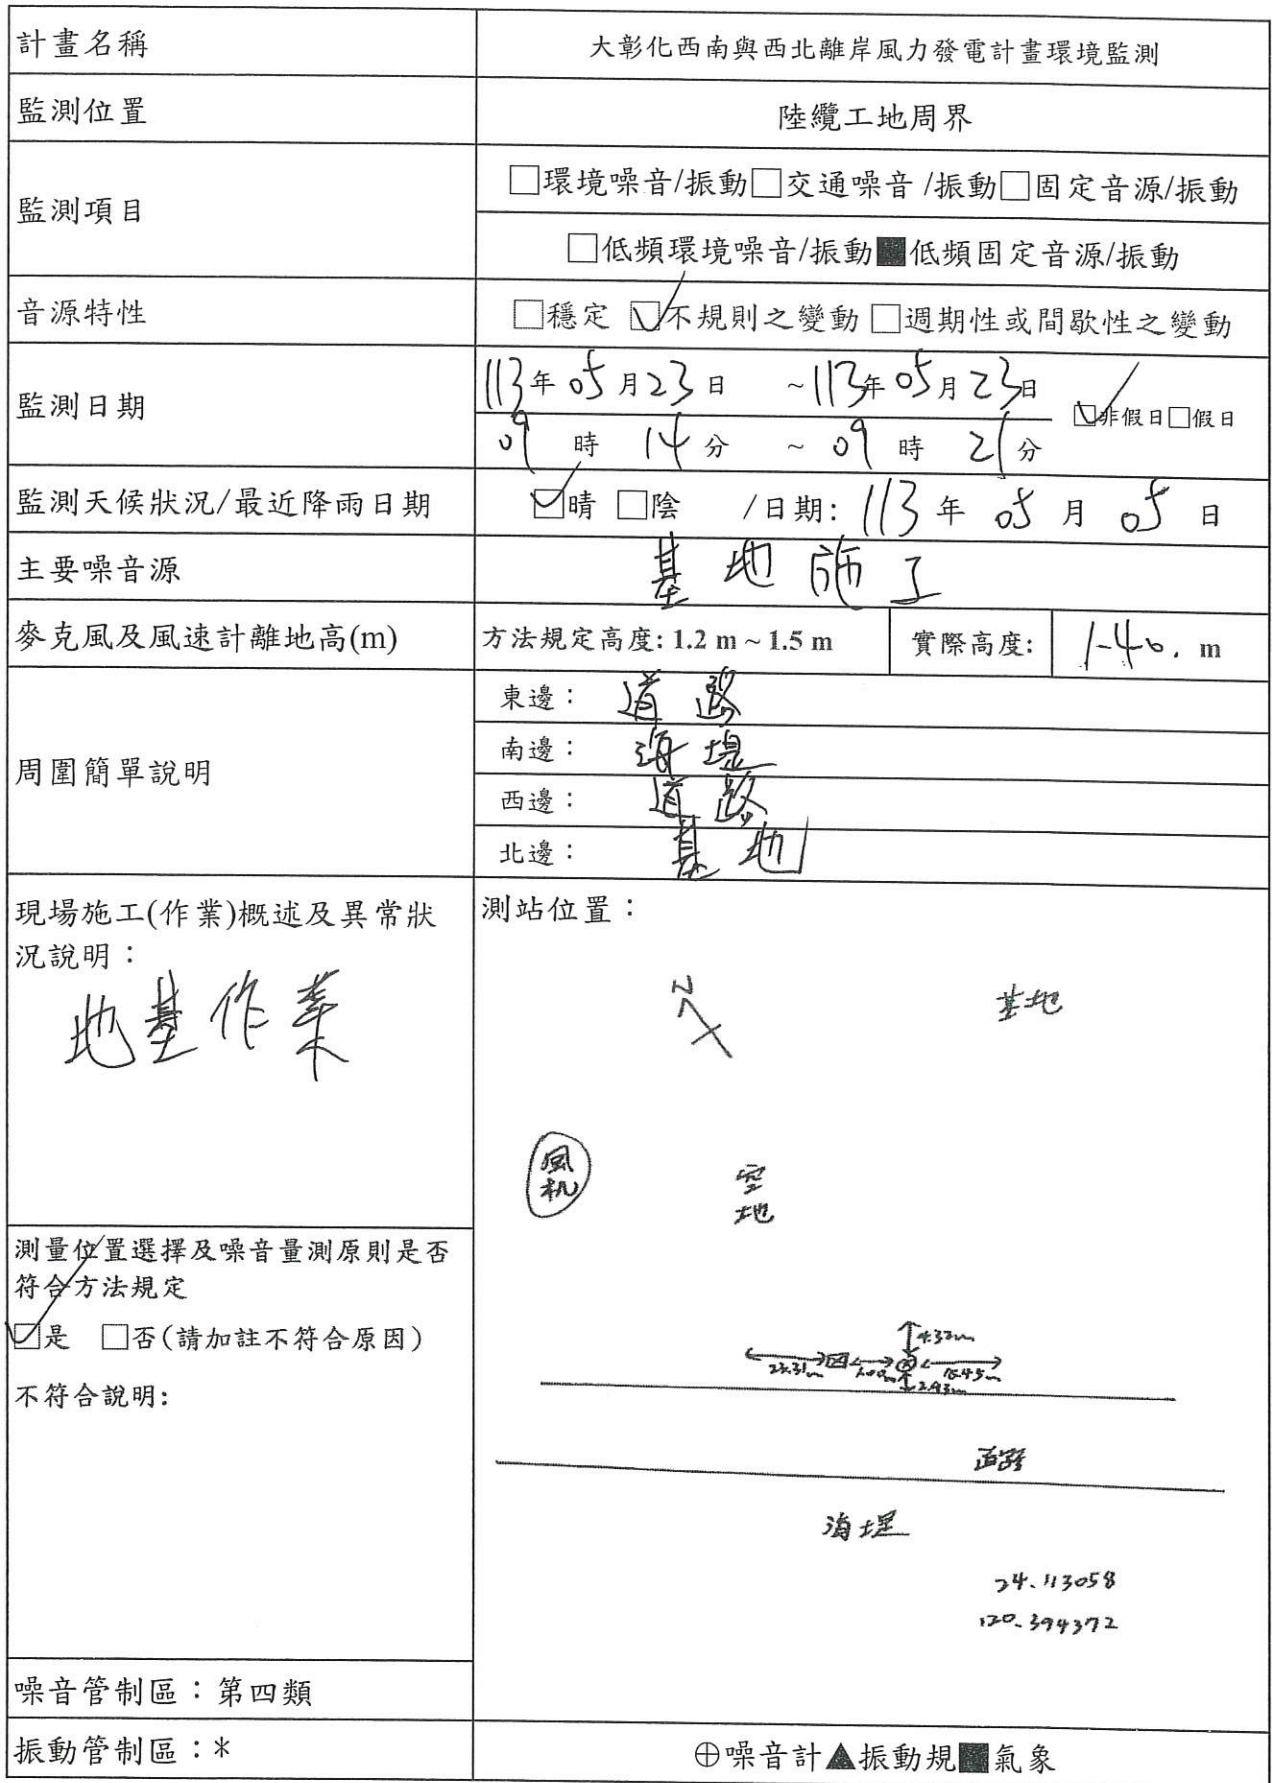 計畫名稱
大彰化西南與西北離岸風力發電計畫環境監測
監測位置
陸纜工地周界
監測項目
□環境噪音/振動□交通噪音 /振動□固定音源/振動
□低頻環境噪音/振動■低頻固定音源/振動
音源特性
□穩定 ☑不規則之變動 □週期性或間歇性之變動
監測日期
113年05月23日 ~113年05月23日
☑非假日□假日
09時14分 ~ 09時21分
監測天候狀況/最近降雨日期
☑晴 □陰 /日期: 113年05月05日
主要噪音源
基地施工
麥克風及風速計離地高(m)
方法規定高度: 1.2 m ~ 1.5 m
實際高度:
1.40. m
周圍簡單說明
東邊： 道路
南邊： 海堤
西邊： 道路
北邊： 基地
現場施工(作業)概述及異常狀
況說明：
地基作業
測站位置：
N
基地
風
机
空
地
測量位置選擇及噪音量測原則是否
符合方法規定
☑是 □否(請加註不符合原因)
不符合說明:
4.32m
23.31m
15.45m
2.93m
道路
海堤
24.113058
120.394372
噪音管制區：第四類
振動管制區：*
⊕噪音計▲振動規■氣象